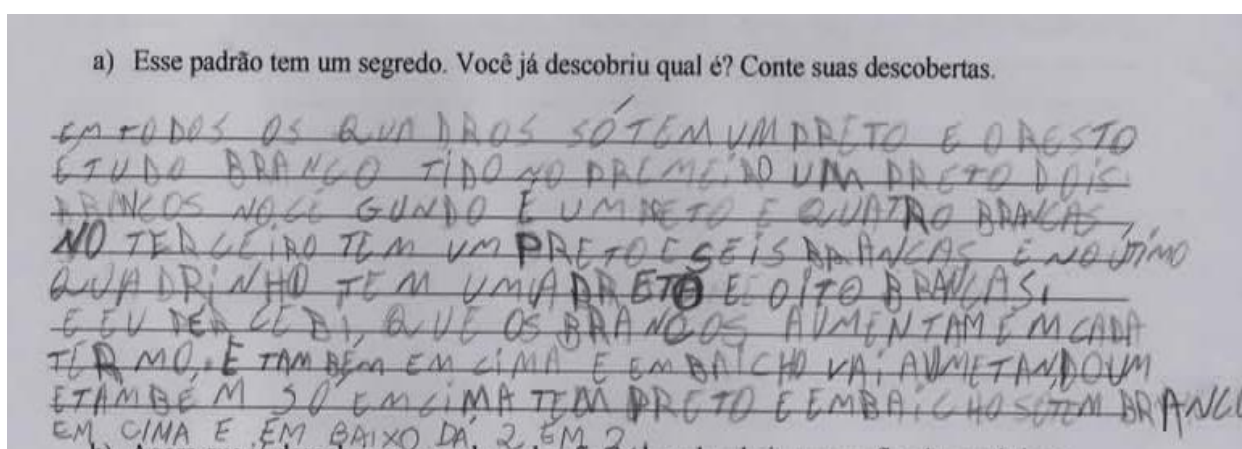 a) Esse padrão tem um segredo. Você já descobriu qual é? Conte suas descobertas.
EM TODOS OS QUADROS SÓ TEM UM PRETO E O RESTO
E TUDO BRANCO TIDO NO PREMEIRO UM PRETO DOIS
BRANCOS NO CÉ GUNDO E UM PRETO E QUATRO BRANCAS,
NO TERCEIRO TEM UM PRETO E SEIS BRANCAS E NO ÚTIMO
QUADRINHO TEM UMA PRETO E OITO BRANCAS.
E EU PERCEBI, QUE OS BRANCOS AUMENTAM EM CADA
TERMO. E TAMBÉM EM CIMA E EM BAICHO VAI AUMETANDO UM
E TAMBÉM SÓ EM CIMA TEM PRETO E EMBAICHO SÓ TEM BRANCO
EM CIMA E EM BAIXO DÁ 2 EM 2